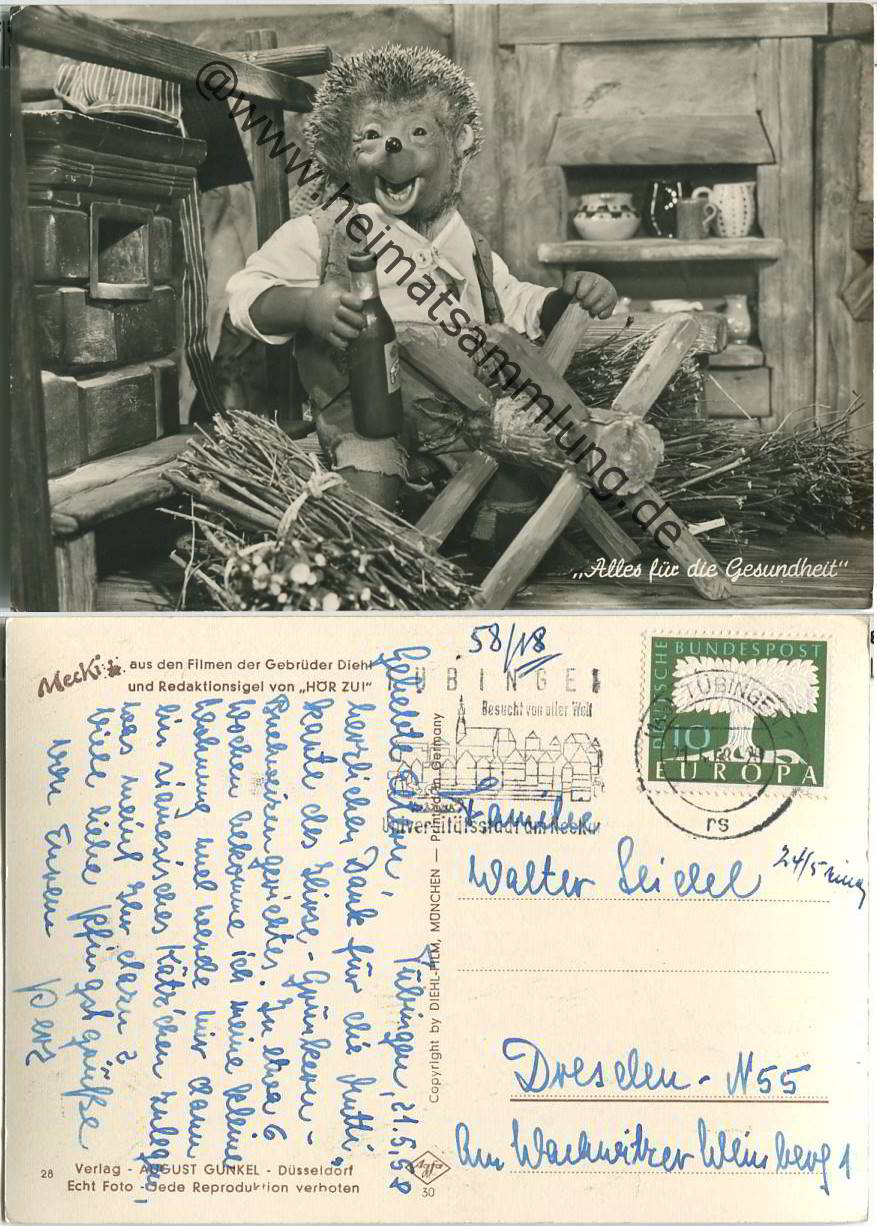 @www.heimatsammlung.de
„Alles für die Gesundheit“
Mecki
aus den Filmen der Gebrüder Diehl
und Redaktionsigel von „HÖR ZU!“
58/18
TÜBINGEN
Besucht von aller Welt
Universitätsstadt am Neckar
DEUTSCHE BUNDESPOST
10
EUROPA
TÜBINGEN
rs
Geliebte Eltern! Tübingen, 21.5.58
herzlichen Dank für die Mutti,
kante des Hirse-Grünkern-
Buchweizengerichtes. In etwa 6
Wochen bekomme ich meine kleine
Wohnung und werde mir dann
ein siamesisches Kätzchen zulegen,
was meint Ihr dazu?
Viele liebe Pfingstgrüße
von Eurem
Copyright by DIEHL-FILM, MÜNCHEN — Printed in Germany
Familie
Walter Seidel
24/5
Dresden-N55
Am Wachwitzer Weinberg 1
28
Verlag - AUGUST GUNKEL - Düsseldorf
Echt Foto - Jede Reproduktion verboten
Agfa
30